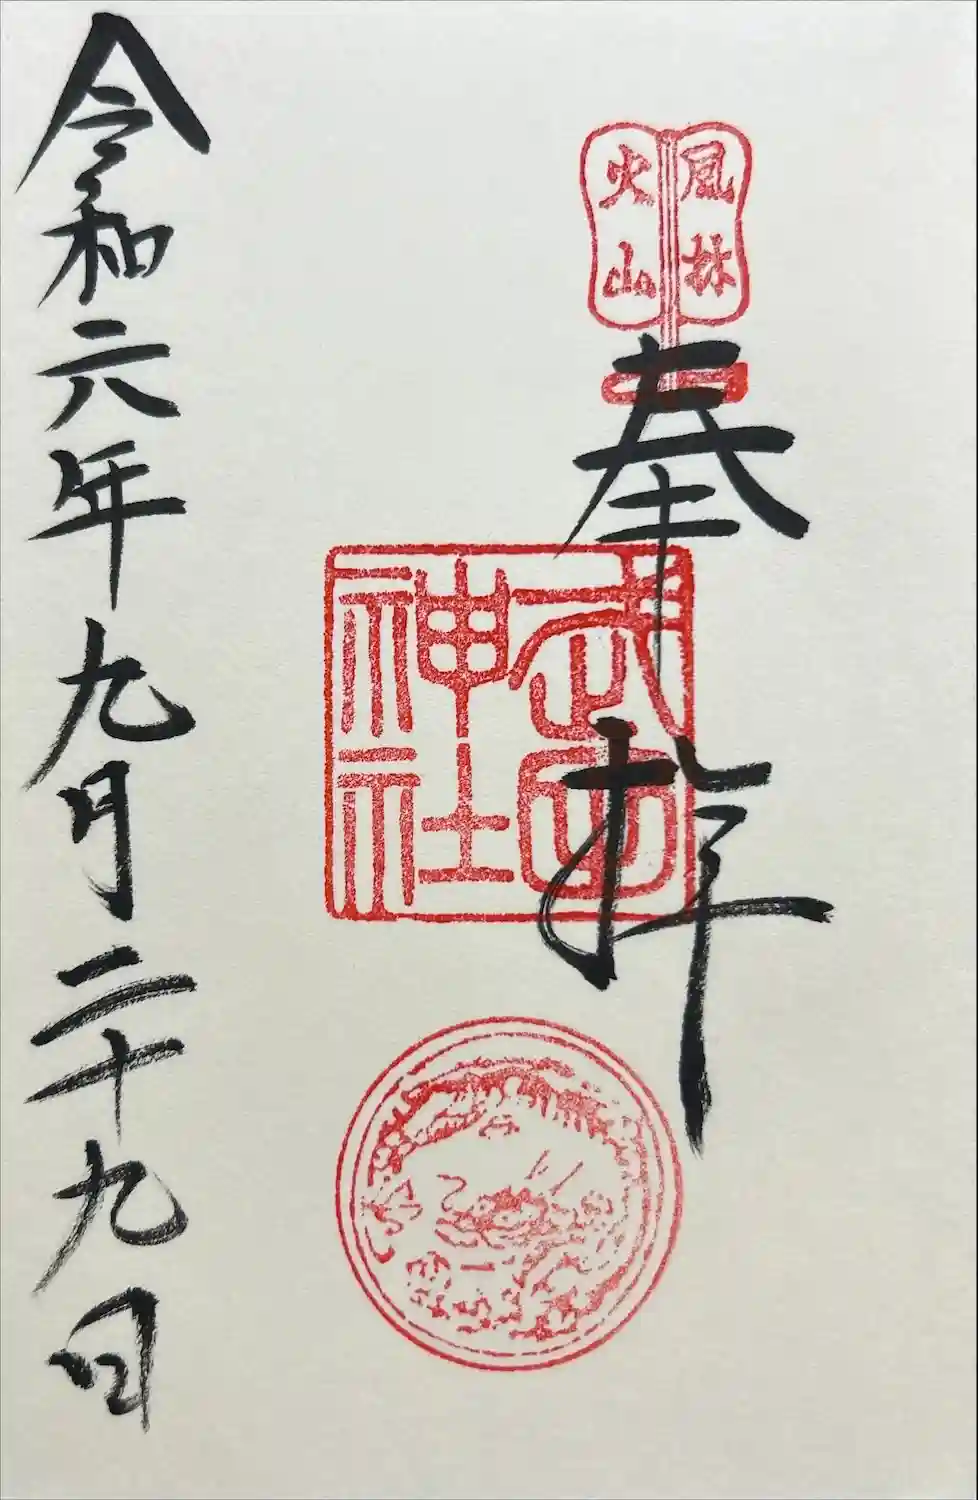 風林
火山
奉拝
武田
神社
令和六年九月二十九日